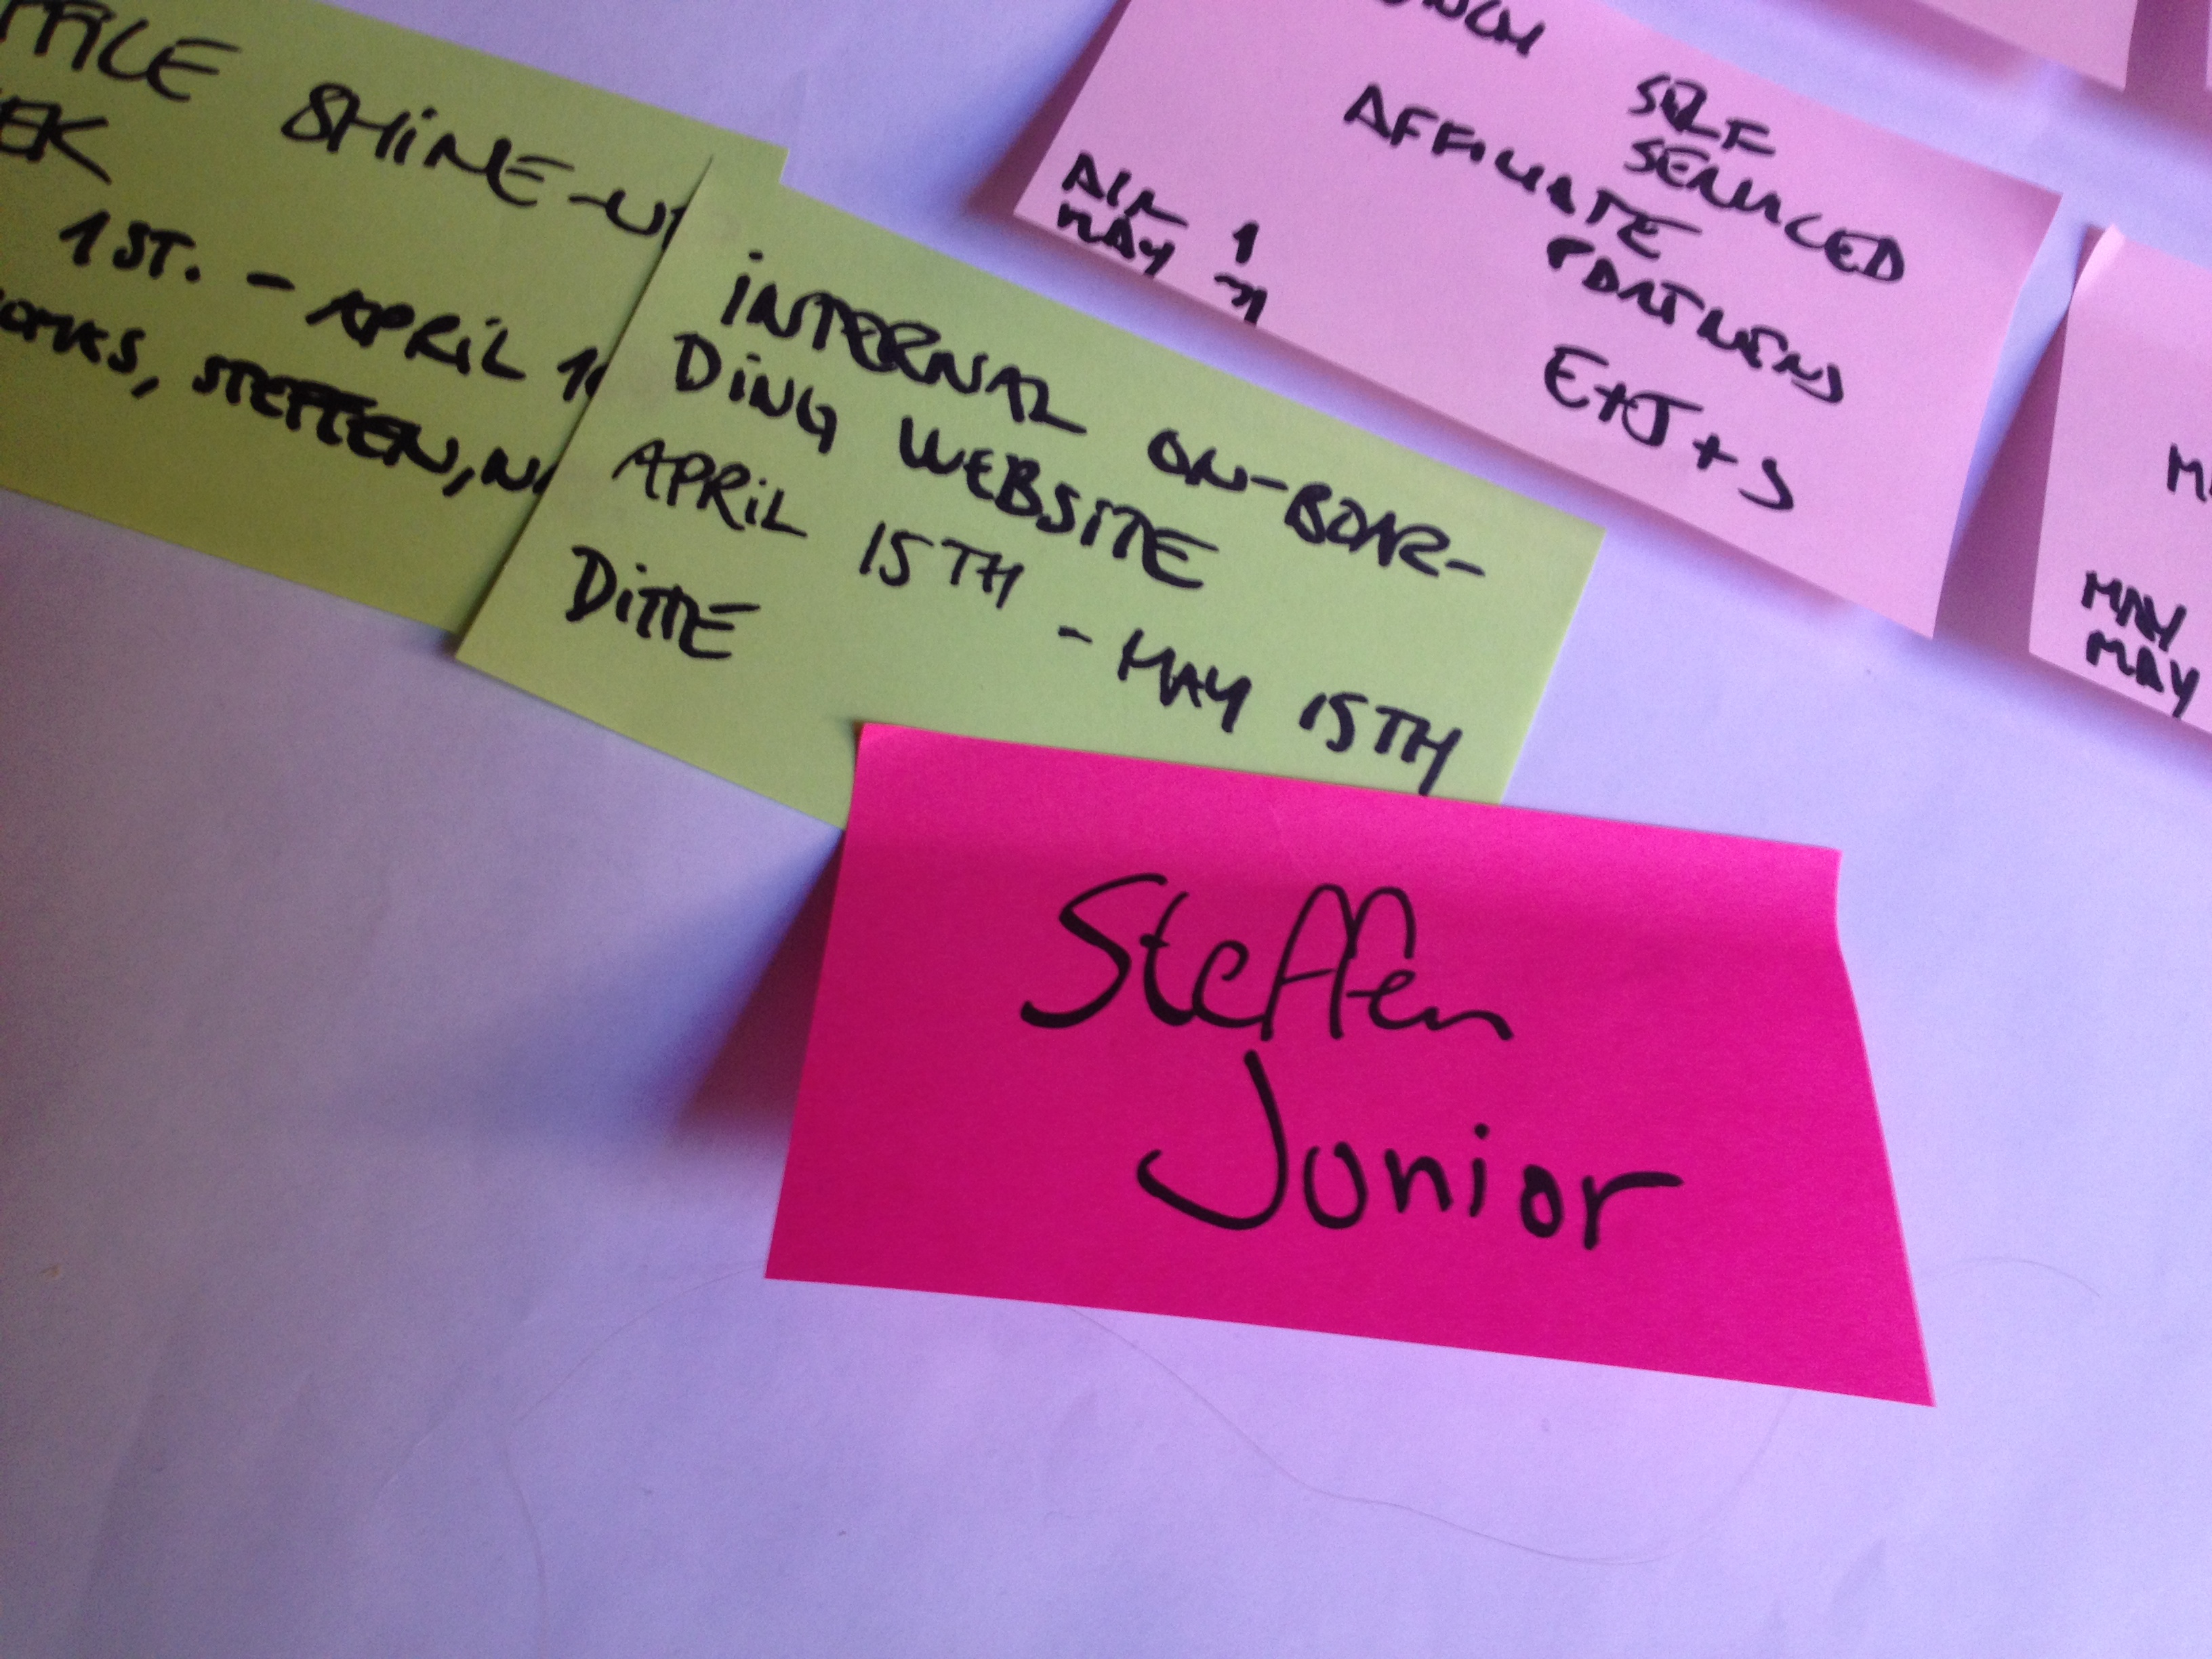 SHINE-UP
1ST. - APRIL
STEFFEN,
INTERNAL ON-BOAR-
DING WEBSITE
APRIL 15TH - MAY 15TH
DITTE
SELF
SERVICED
AFFILIATE
PARTNERS
1
MAY 31
E+J+S
MAY
MAY
Steffen
Junior